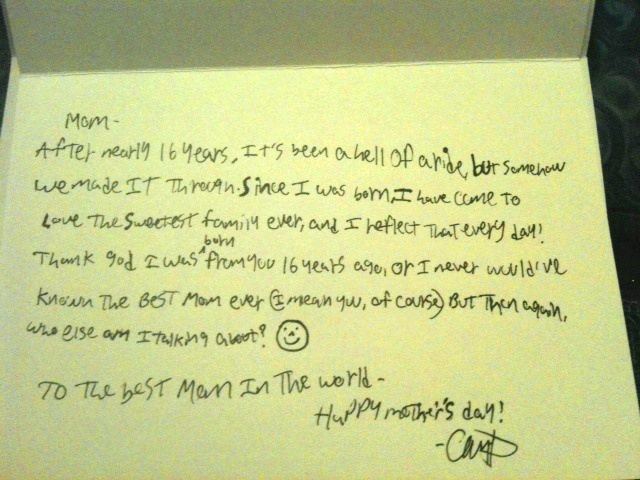 Mom-
After nearly 16 years, It's been a hell of a ride, but somehow
we made IT through. Since I was born, I have come to
Love The Sweetest family ever, and I reflect That every day!
Thank god I was born from you 16 years ago, or I never would've
known The BEST Mom ever (I mean you, of course) But Then again,
who else am I talking about?
To The best Mom In The world-
Happy mother's day!